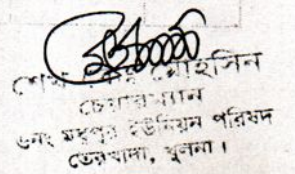 শেখ মোহসিন
চেয়ারম্যান
৬নং মধুপুর ইউনিয়ন পরিষদ
তেরখাদা, খুলনা।